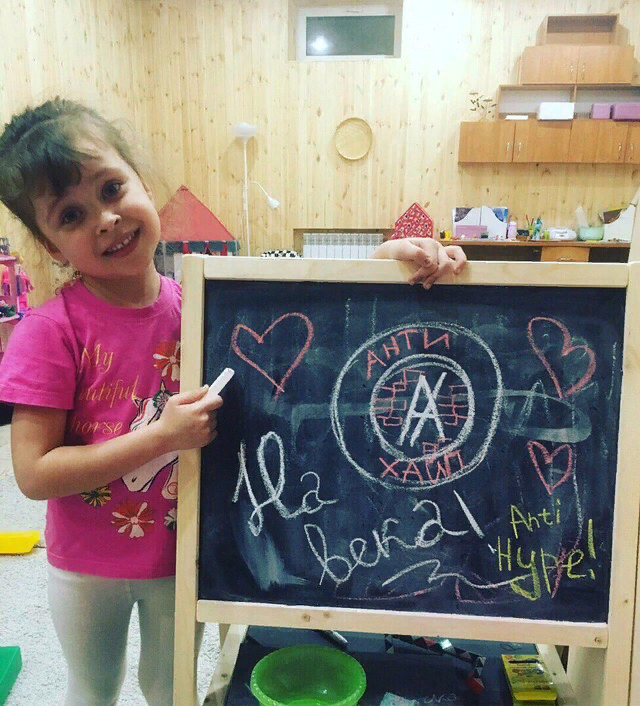 My
beautiful
horse
АНТИ
ХАЙП
На
века!
Anti
Hype!